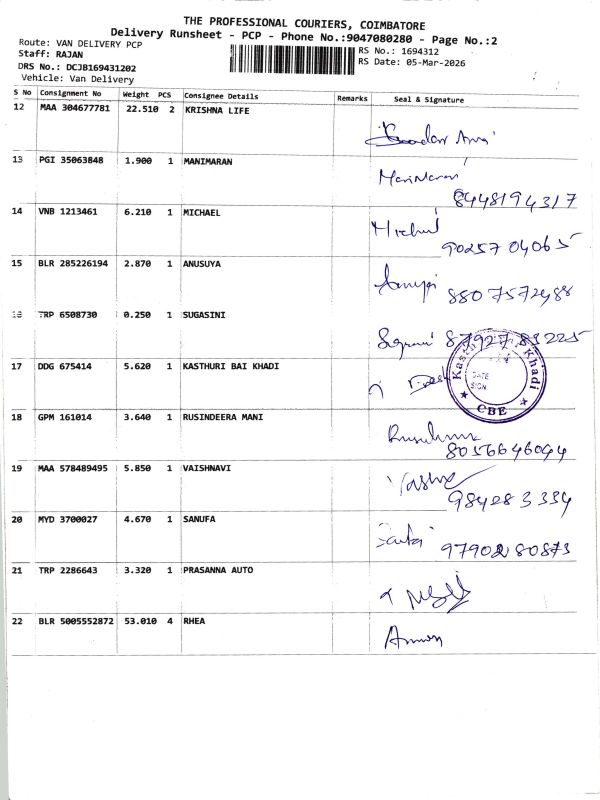 THE PROFESSIONAL COURIERS, COIMBATORE
Delivery Runsheet - PCP - Phone No.:9047080280 - Page No.:2
Route: VAN DELIVERY PCP
Staff: RAJAN
DRS No.: DCJB169431202
Vehicle: Van Delivery
RS No.: 1694312
RS Date: 05-Mar-2026
S No Consignment No Weight PCS Consignee Details Remarks Seal & Signature
12 MAA 304677781 22.510 2 KRISHNA LIFE
13 PGI 35063848 1.900 1 MANIMARAN
Manimaran
8448194317
14 VNB 1213461 6.210 1 MICHAEL
90257 04065
15 BLR 285226194 2.870 1 ANUSUYA
8807572988
TRP 6508730 0.250 1 SUGASINI
17 DDG 675414 5.620 1 KASTHURI BAI KHADI
Khadi
DATE
SIGN
CBE
18 GPM 161014 3.640 1 RUSINDEERA MANI
8056646094
19 MAA 578489495 5.850 1 VAISHNAVI
984283334
20 MYD 3700027 4.670 1 SANUFA
9790280873
21 TRP 2286643 3.320 1 PRASANNA AUTO
22 BLR 5005552872 53.010 4 RHEA